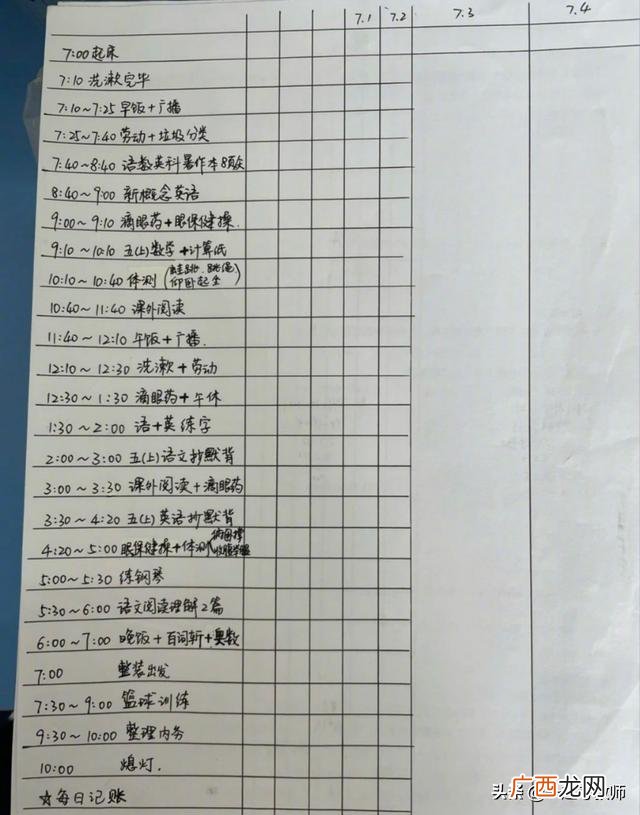 7.1 7.2 7.3 7.4
7:00 起床
7:10 洗漱完毕
7:10~7:25 早饭+广播
7:25~7:40 劳动+垃圾分类
7:40~8:40 语数英科暑作本8页
8:40~9:00 新概念英语
9:00~9:10 滴眼药+眼保健操.
9:10~10:10 五(上)数学+计算纸
10:10~10:40 体测(蛙跳、跳绳 仰卧起坐)
10:40~11:40 课外阅读
11:40~12:10 午饭+广播.
12:10~12:30 洗漱+劳动
12:30~1:30 滴眼药+午休
1:30~2:00 语+英练字
2:00~3:00 五(上)语文抄默背
3:00~3:30 课外阅读+滴眼药
3:30~4:20 五(上)英语抄默背
4:20~5:00 眼保健操+体测
5:00~5:30 练钢琴
5:30~6:00 语文阅读理解2篇
6:00~7:00 晚饭+百词斩+奥数
7:00 整装出发
7:30~9:00 篮球训练
9:30~10:00 整理内务
10:00 熄灯.
☆每日记账
头条
广西龙网
师